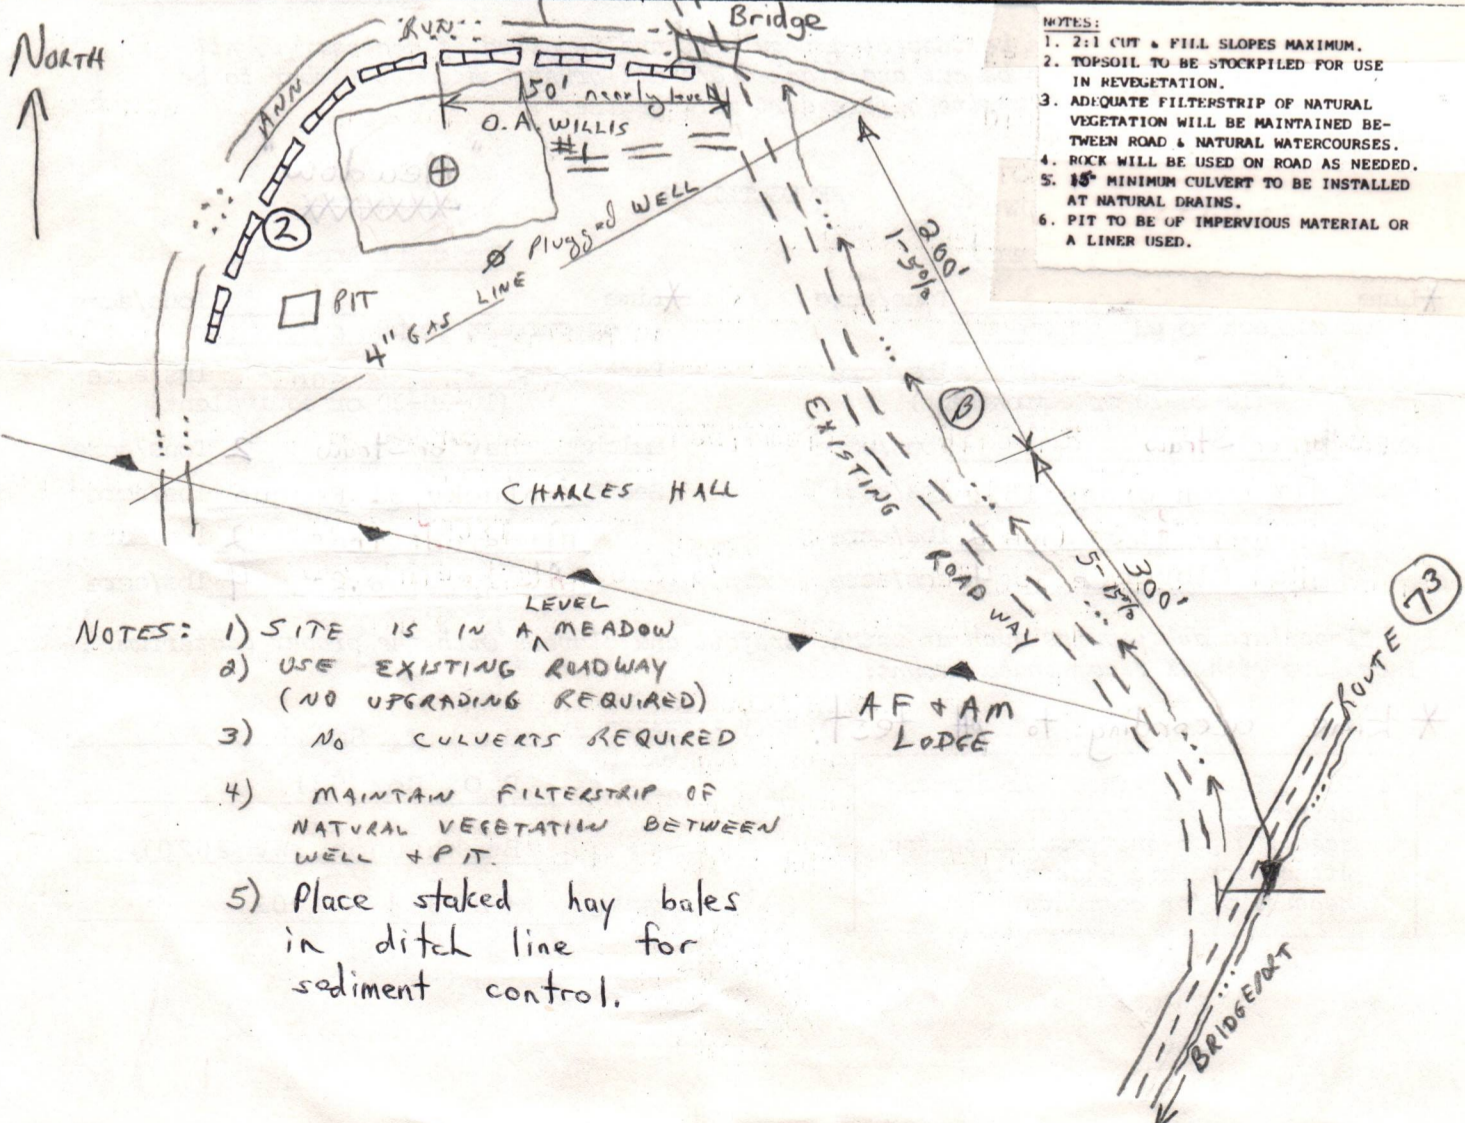 NORTH
RUN
ANN
Bridge
150' nearly level
O.A. WILLIS
#1
2
PIT
Plugged WELL
4" GAS LINE
200'
1-5%
B
EXISTING
ROADWAY
300'
5-15%
CHARLES HALL
AF + AM
LODGE
ROUTE 73
BRIDGEPORT
NOTES:
1. 2:1 CUT & FILL SLOPES MAXIMUM.
2. TOPSOIL TO BE STOCKPILED FOR USE
IN REVEGETATION.
3. ADEQUATE FILTERSTRIP OF NATURAL
VEGETATION WILL BE MAINTAINED BE-
TWEEN ROAD & NATURAL WATERCOURSES.
4. ROCK WILL BE USED ON ROAD AS NEEDED.
5. 15" MINIMUM CULVERT TO BE INSTALLED
AT NATURAL DRAINS.
6. PIT TO BE OF IMPERVIOUS MATERIAL OR
A LINER USED.
NOTES: 1) SITE IS IN A LEVEL MEADOW
2) USE EXISTING ROADWAY
(NO UPGRADING REQUIRED)
3) NO CULVERTS REQUIRED
4) MAINTAIN FILTERSTRIP OF
NATURAL VEGETATION BETWEEN
WELL + PIT.
5) Place staked hay bales
in ditch line for
sediment control.